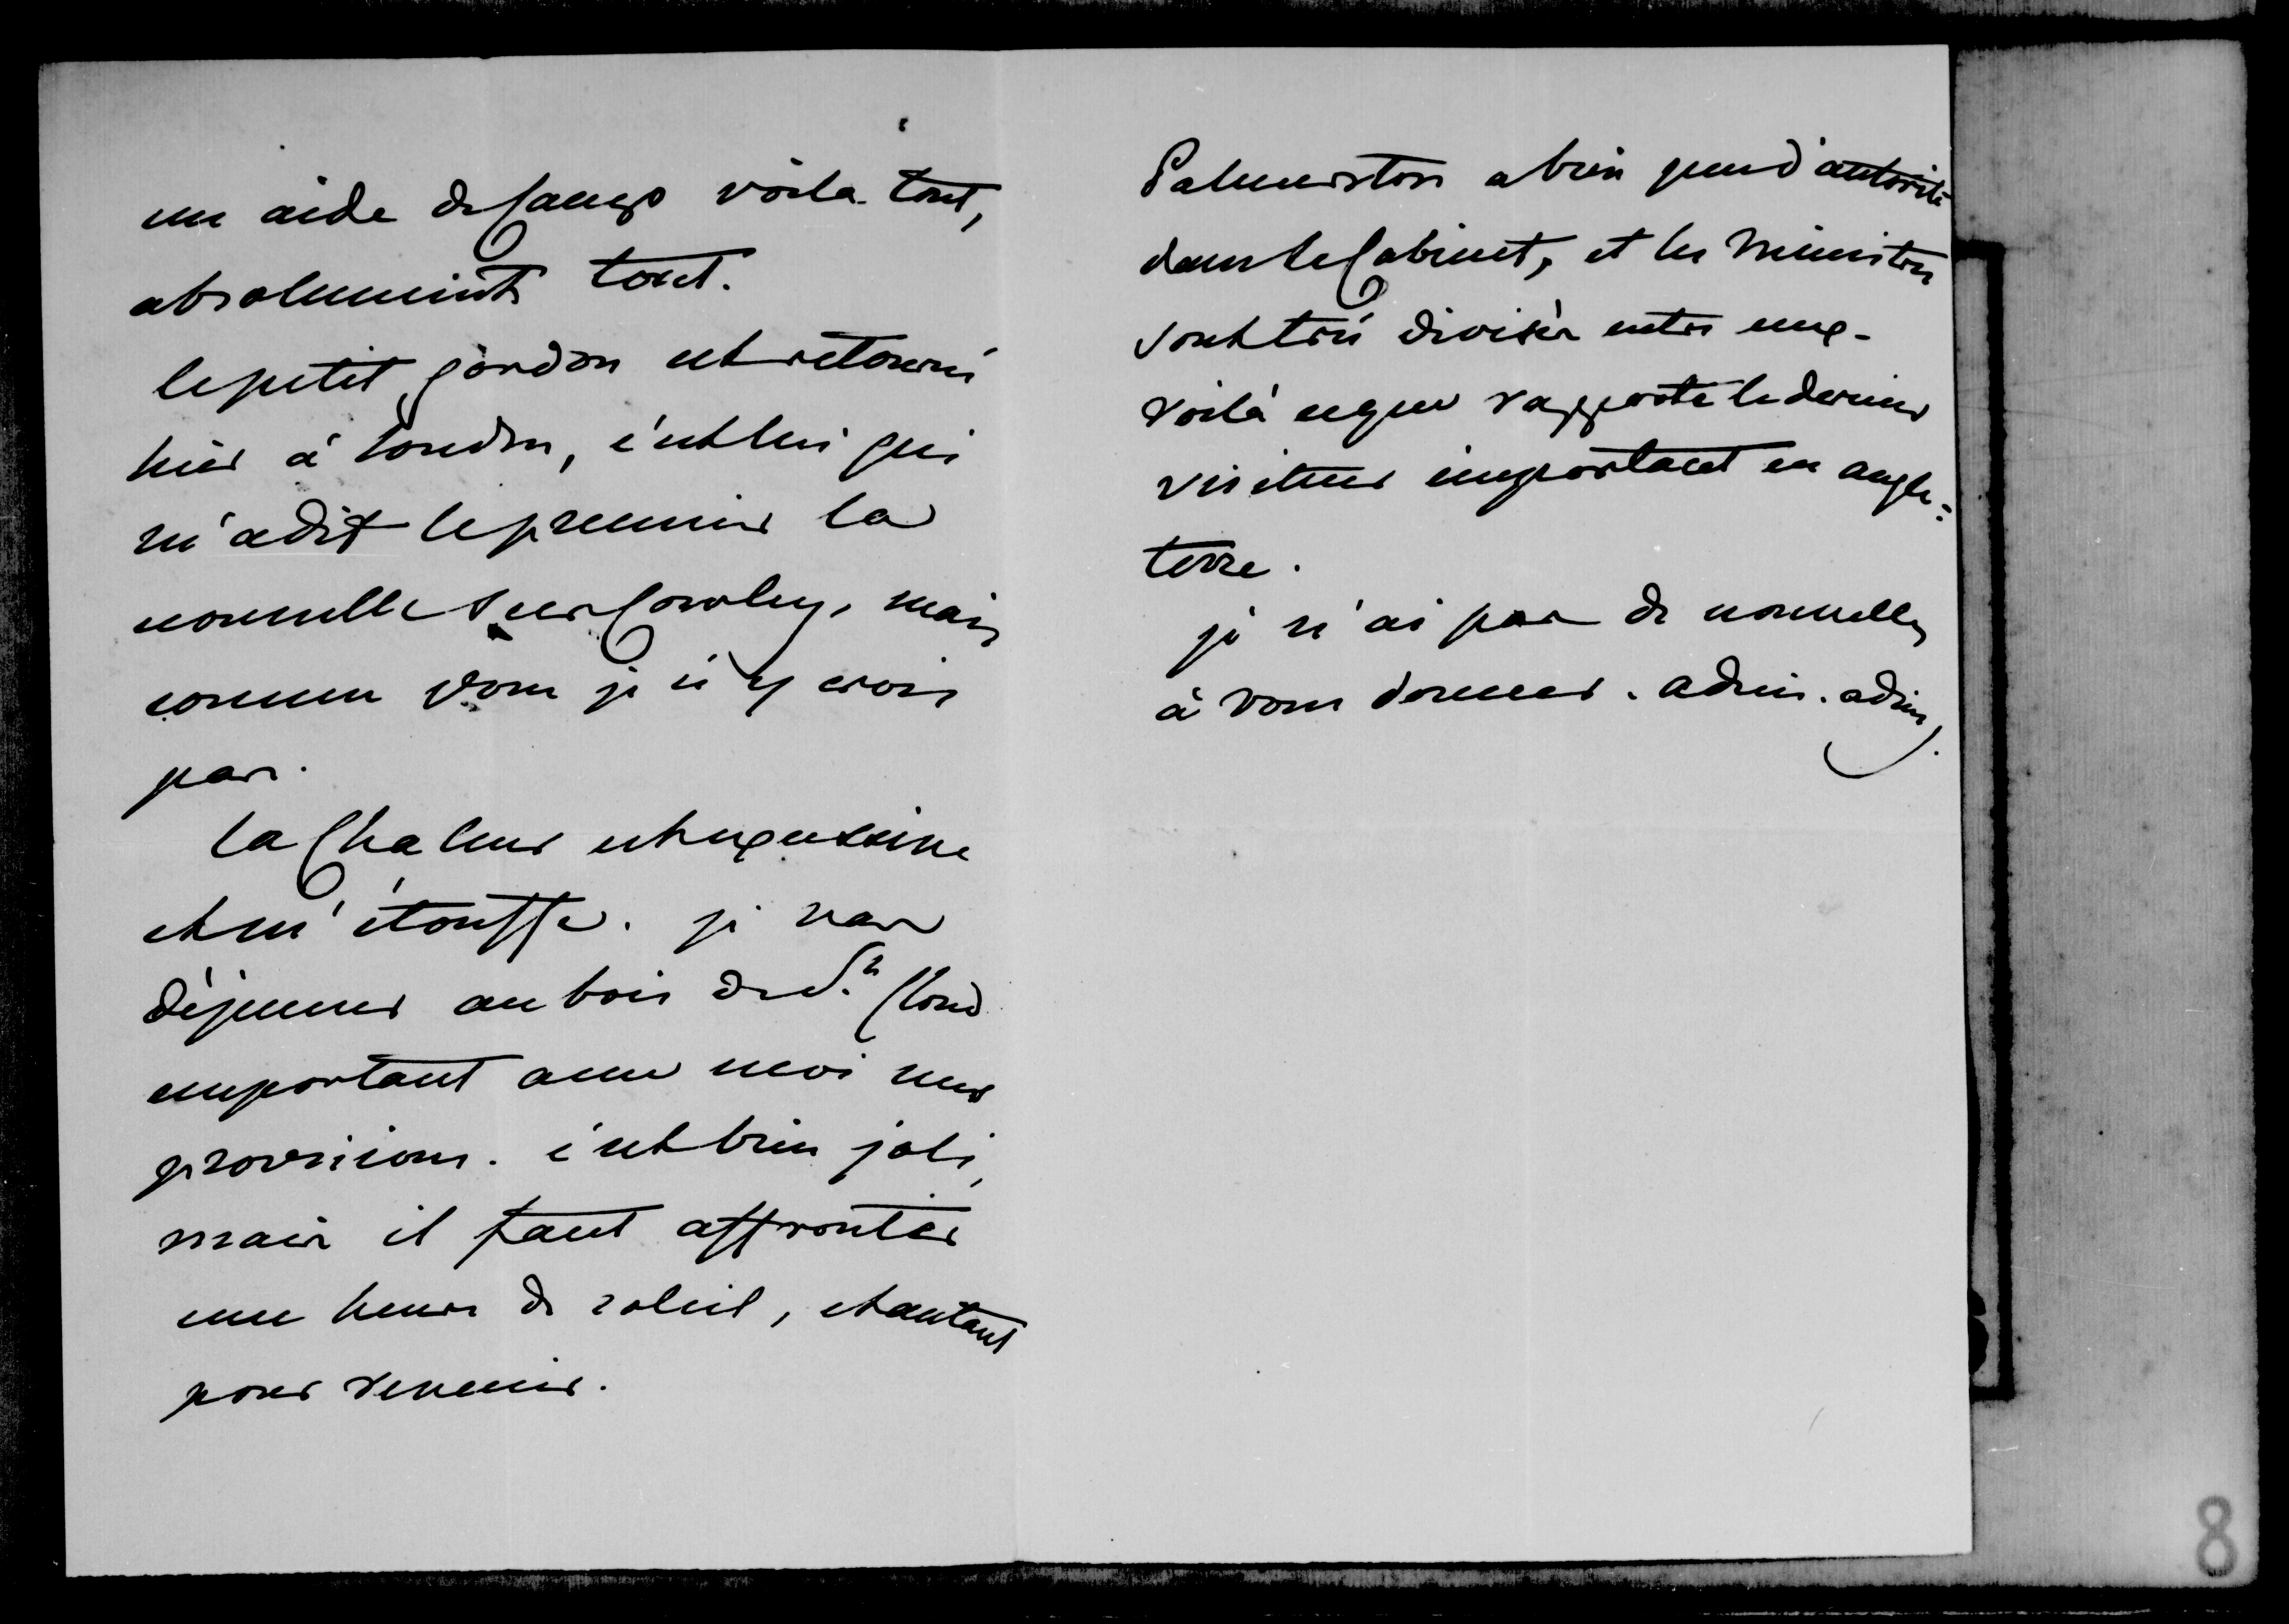 un aide de Camp voila tout,
absolument tout.
le petit gordon est retourné
hier à Londres, c'est lui qui
m'a dit le premier la
nouvelle sur Cowley, mais
comme vous je n'y crois
pas.
la Chaleur est excessive
et m'étouffe. je vais
déjeuner au bois de St. Cloud
emportant avec moi mes
provisions. c'est bien joli,
mais il faut affronter
une heure de soleil, et autant
pour revenir.
Palmerston a bien peu d'autorité
dans le Cabinet, et les Ministres
sont très divisés entre eux.
Voilà ce que rapporte le dernier
visiteur important en angle=
terre.
je n'ai pas de nouvelles
à vous donner. adieu. adieu.
8